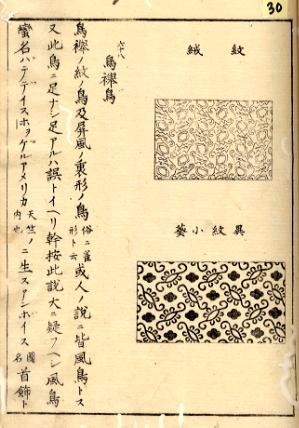 30
紋絨
異紋小葵
六十八
鳥襷鳥
鳥襷ノ紋ノ鳥及屏風ノ裏形ノ鳥俗ニ雀形ト云或人ノ説ニ皆風鳥トス
又此鳥ニ足ナシ足アルハ誤トイヘリ幹按此説大ニ疑フヘシ風鳥
蛮名ハテデイスホヲゲルアメリカ天竺ノ内也ニ生スアンボイス國名首飾ト